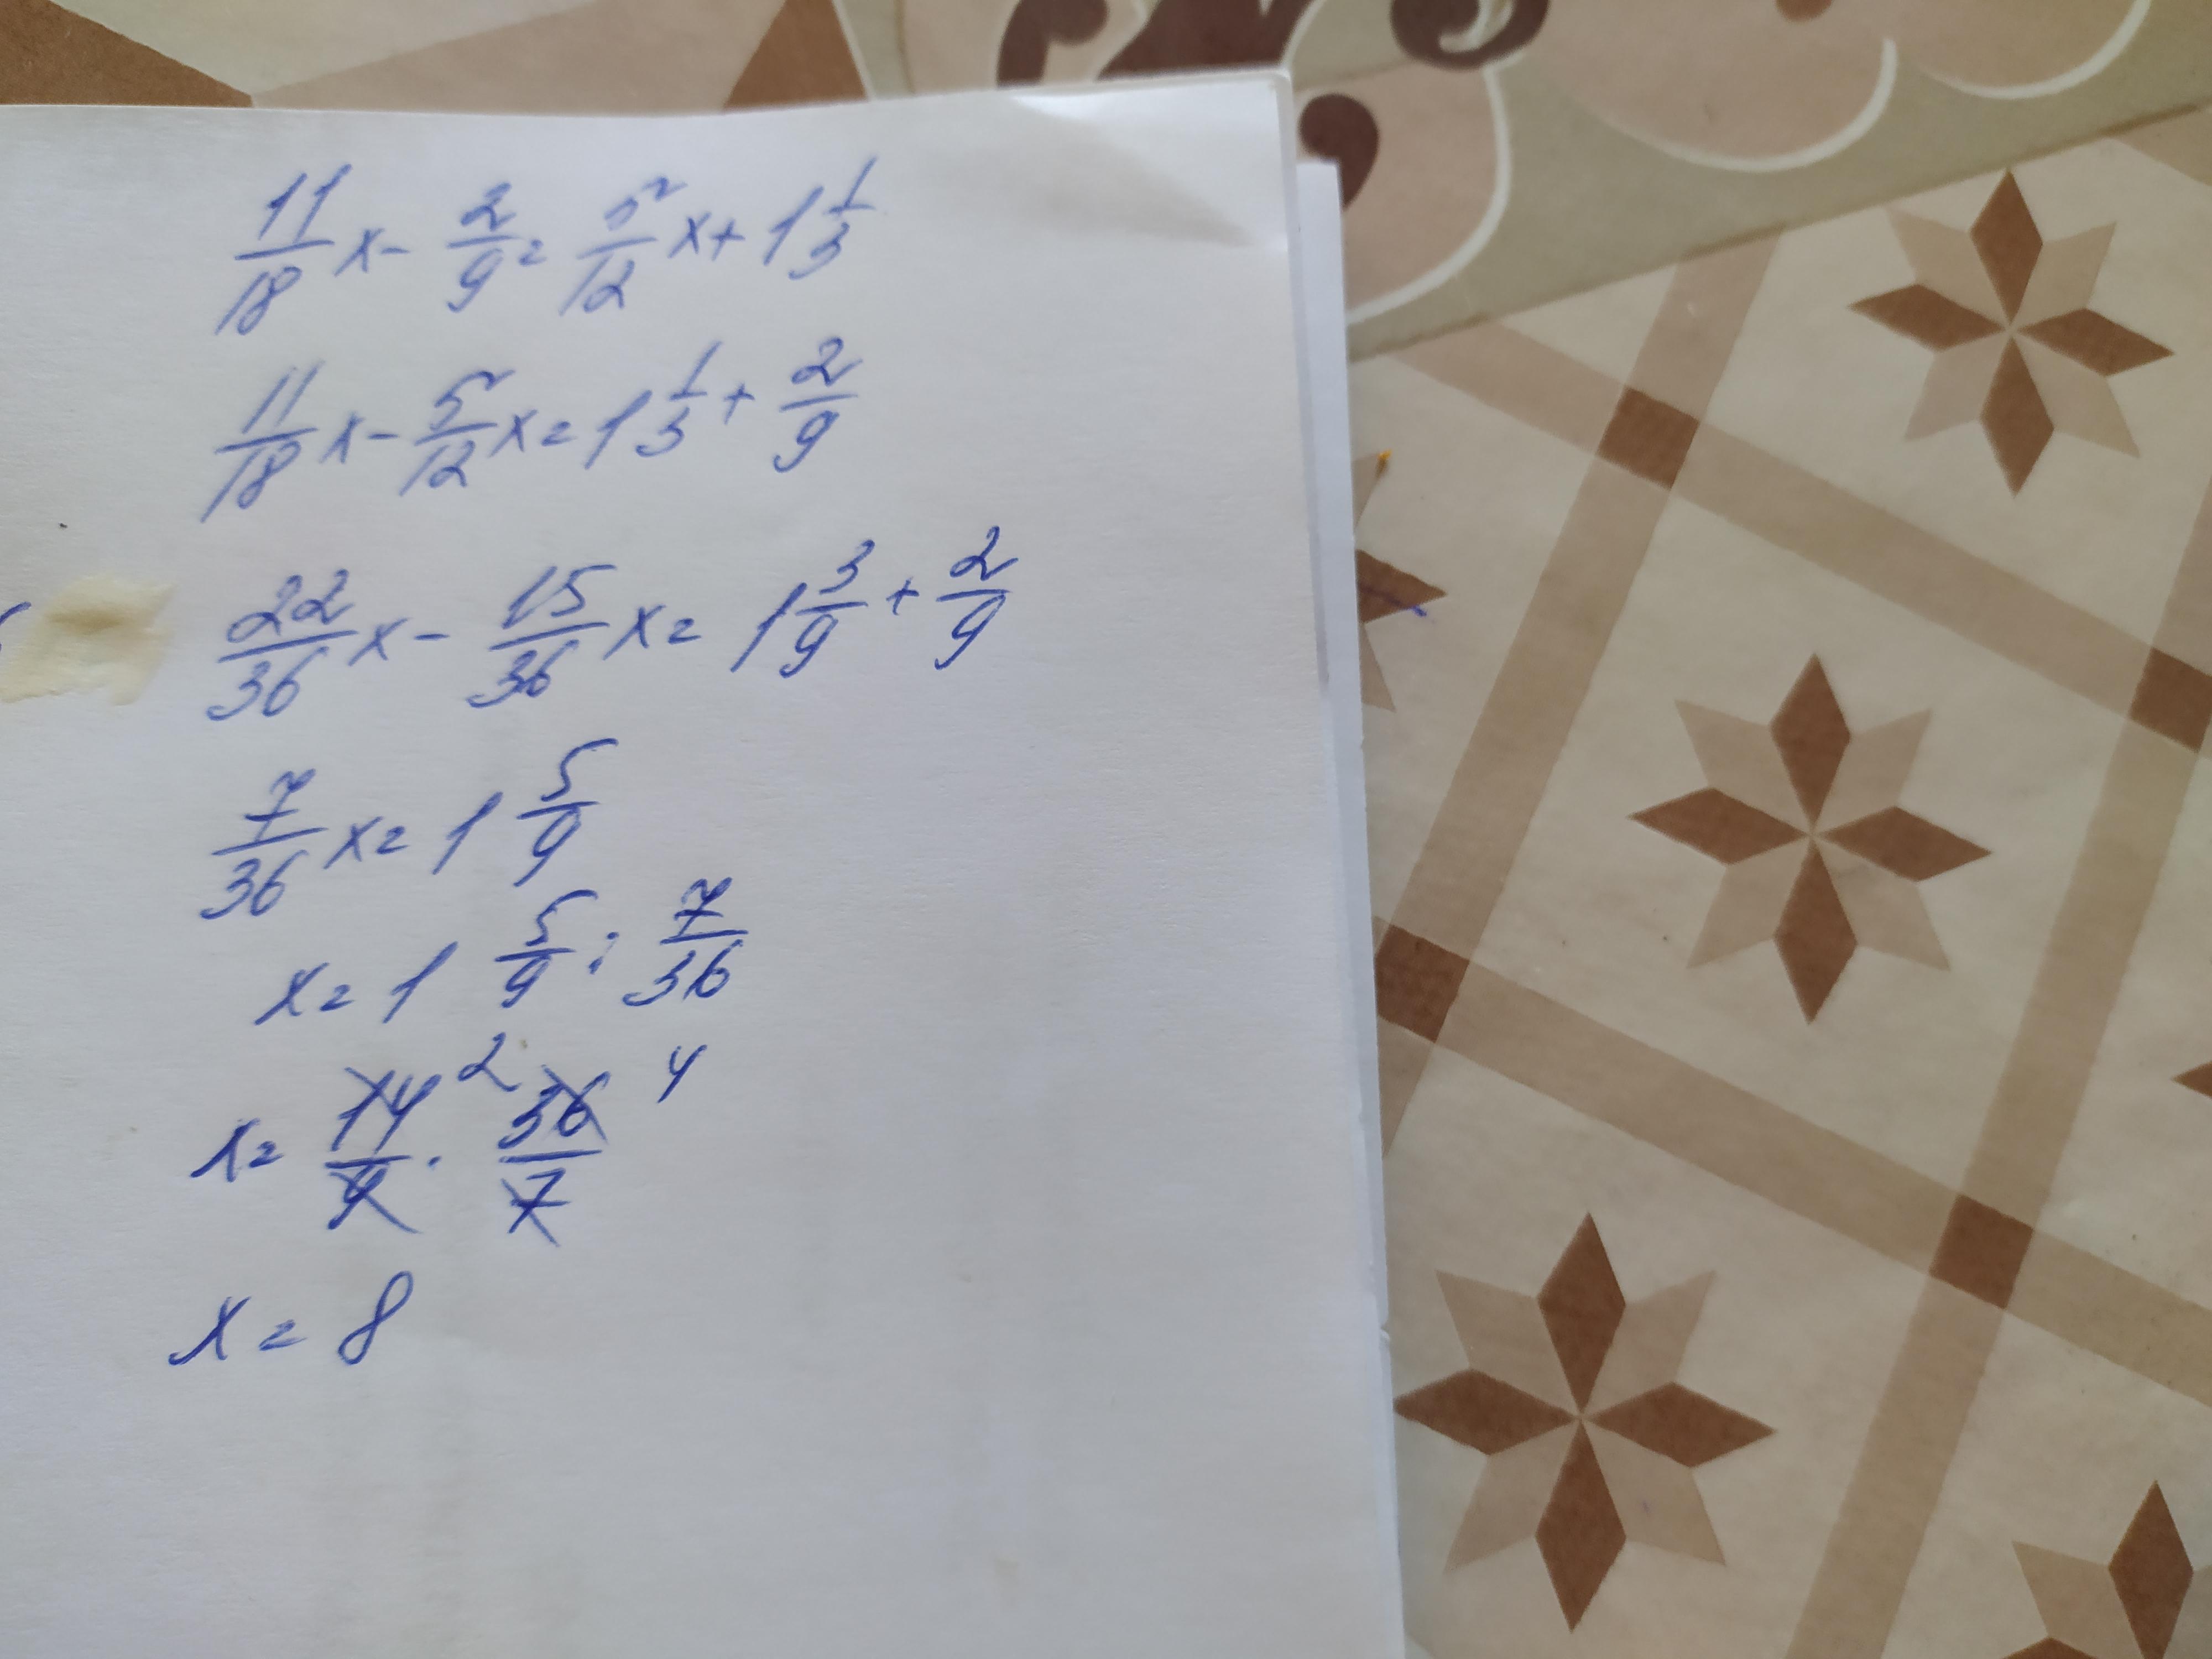 11/18 x - 2/9 = 5/12 x + 1 1/3
11/18 x - 5/12 x = 1 1/3 + 2/9
22/36 x - 15/36 x = 1 3/9 + 2/9
7/36 x = 1 5/9
x = 1 5/9 : 7/36
x = 14/9 2 · 36/7 4
x = 8